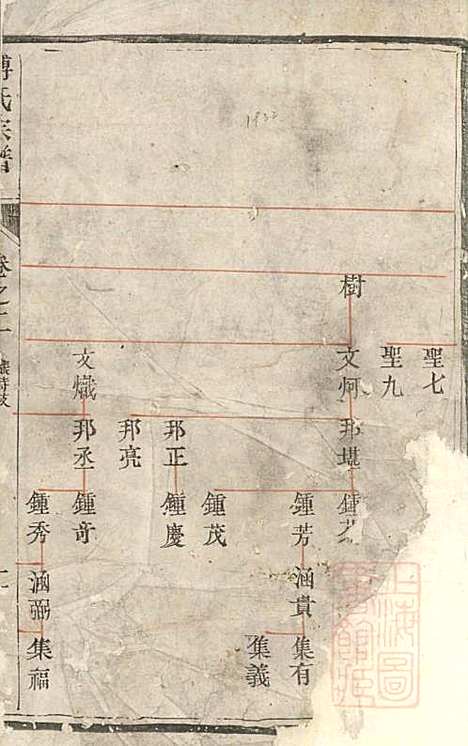 聖七
聖九
樹
文炯
邦堪
鍾芳
涵貴
集有
集義
鍾茂
邦正
鍾慶
邦亮
文熾
邦丞
鍾奇
鍾秀
涵弼
集福
傅氏宗譜
卷之二
1932
上海圖書館藏